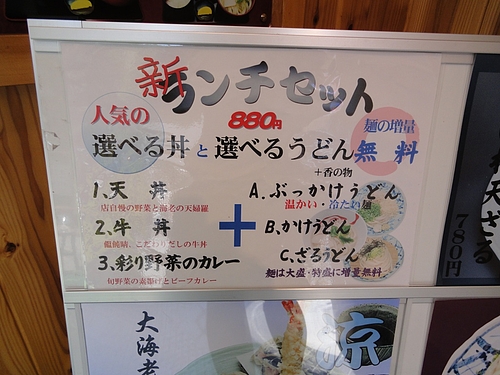 新ランチセット
880円
人気の
麺の増量
選べる丼と選べるうどん無料
+香の物
1、天丼
店自慢の野菜と海老の天婦羅
2、牛丼
饂飩晴、こだわりだしの牛丼
3、彩り野菜のカレー
旬野菜の素揚げとビーフカレー
+
A.ぶっかけうどん
温かい・冷たい麺
B.かけうどん
C.ざるうどん
麺は大盛・特盛に増量無料
780円
大海老
涼